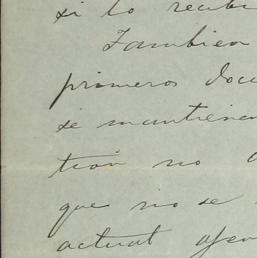 si lo recibi
Tambien
primeros docu
se mantienen
tion no
que no se
actual